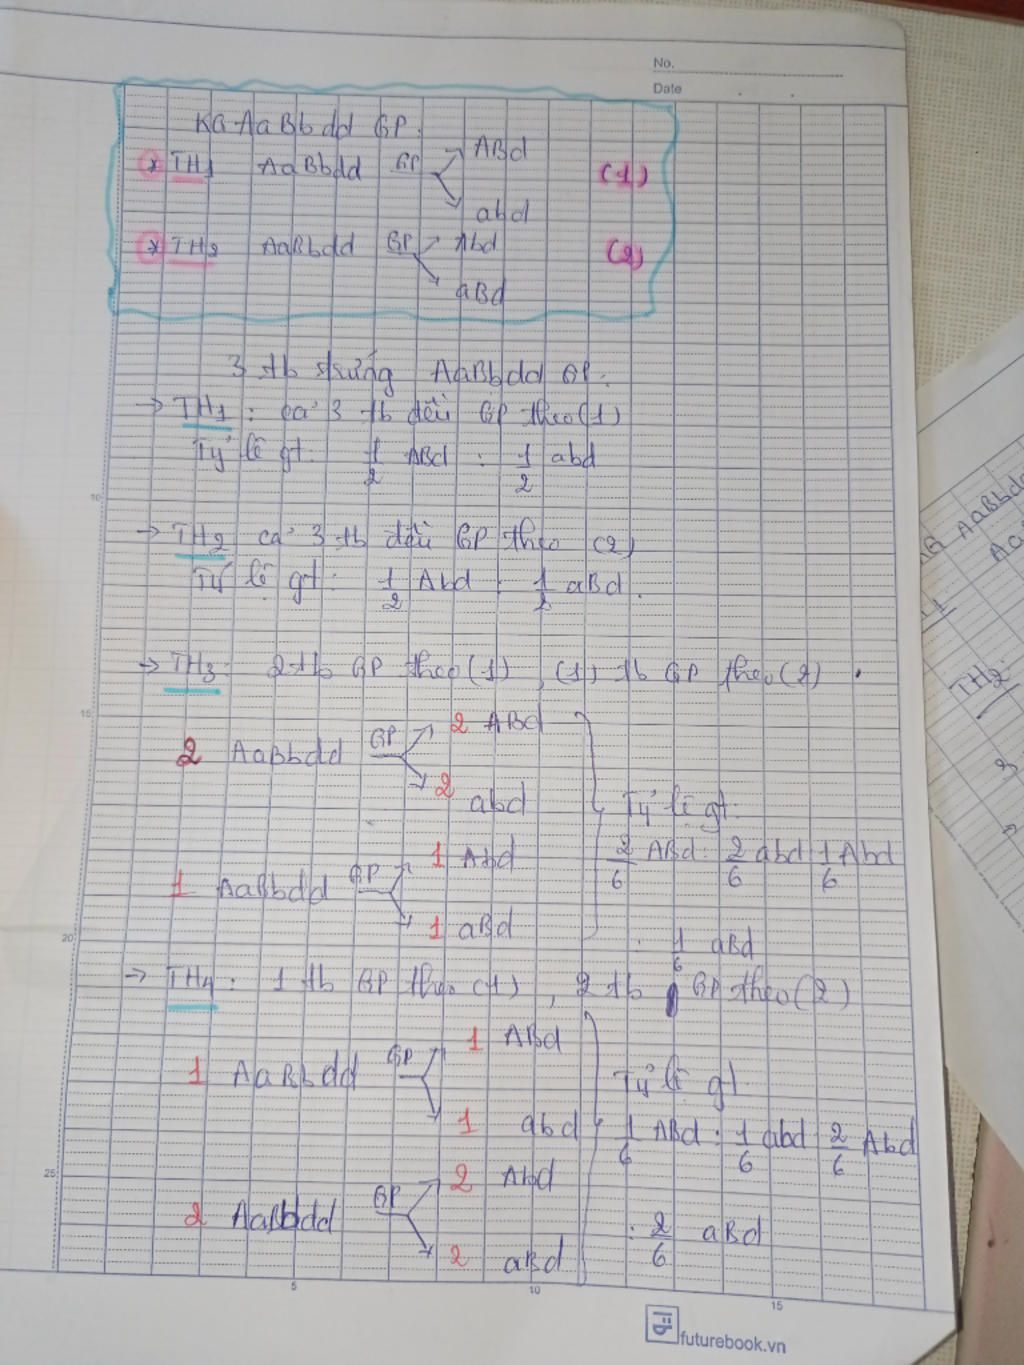 No.
Date
KG AaBbdd GP.
* TH1 AaBbdd GP ABd (1)
abd
* TH2 AaBbdd GP Abd (2)
aBd
3 tb trứng AaBbdd GP:
→ TH1: cả 3 tb đều GP theo (1)
Tỷ lệ gt: 1/2 ABd : 1/2 abd
10
→ TH2 cả 3 tb đều GP theo (2)
Tỷ lệ gt: 1/2 Abd : 1/2 aBd.
→ TH3: 2 tb GP theo (1), (1) tb GP theo (2).
15
2 AaBbdd GP 2 ABd
2 abd
Tỷ lệ gt:
1 AaBbdd GP 1 Abd
2/6 ABd : 2/6 abd : 1/6 Abd
1 aBd
: 1/6 aBd
20
→ TH4: 1 tb GP theo (1), 2 tb GP theo (2)
1 AaBbdd GP 1 ABd
1 abd
Tỷ lệ gt
1/6 ABd : 1/6 abd : 2/6 Abd
25
2 AaBbdd GP 2 Abd
2 aBd
: 2/6 aBd
5
10
15
futurebook.vn
AaBbdd
TH2